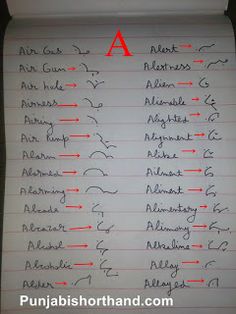 A
Air Gas
Air Gun
Air hole
Airness
Airing
Air Pump
Alarm
Alarmed
Alarming
Alcade
Alcazar
Alcohol
Alcoholic
Alder
Alert
Alertness
Alien
Alienable
Alighted
Alignment
Alike
Ailment
Aliment
Alimentary
Alimony
Alkaline
Allay
Allayed
Punjabishorthand.com